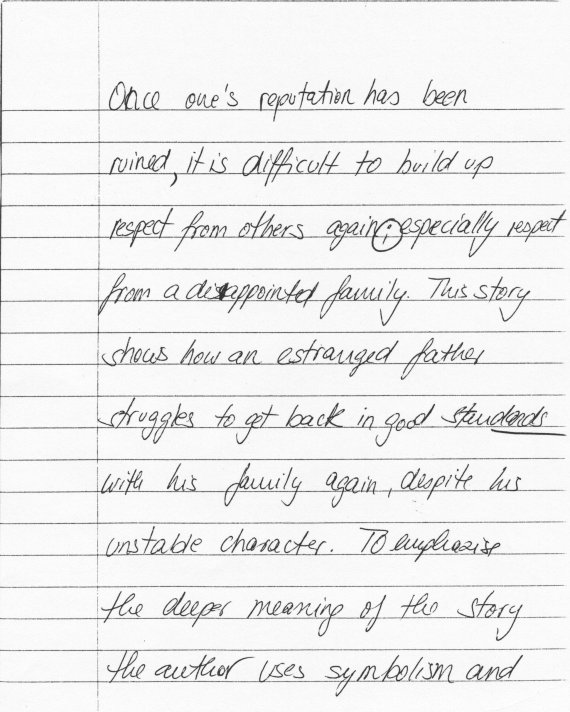 Once one's reputation has been
ruined, it is difficult to build up
respect from others again; especially respect
from a disappointed family. This story
shows how an estranged father
struggles to get back in good standards
with his family again, despite his
unstable character. To emphazise
the deeper meaning of the story
the author uses symbolism and